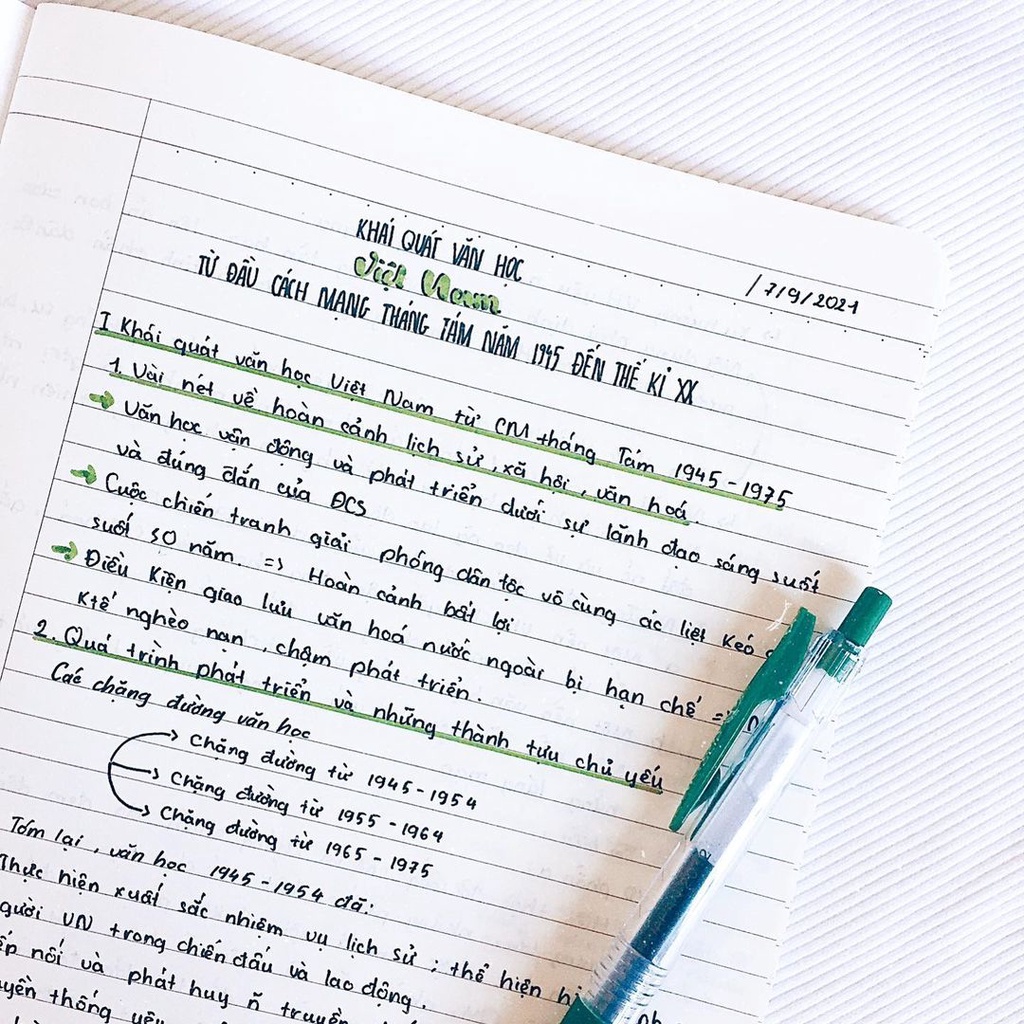 KHÁI QUÁT VĂN HỌC
Việt Nam
/7/9/2021
TỪ ĐẦU CÁCH MẠNG THÁNG TÁM NĂM 1945 ĐẾN THẾ KỈ XX
I Khái quát văn học Việt Nam từ CM tháng Tám 1945 - 1975
1. Vài nét về hoàn cảnh lịch sử, xã hội, văn hoá.
→ Văn học vận động và phát triển dưới sự lãnh đạo sáng suốt
và đúng đắn của ĐCS
→ Cuộc chiến tranh giải phóng dân tộc vô cùng ác liệt kéo
suốt 30 năm. => Hoàn cảnh bất lợi
→ Điều kiện giao lưu văn hoá nước ngoài bị hạn chế =>
Ktế nghèo nạn, chậm phát triển.
2. Quá trình phát triển và những thành tựu chủ yếu
Các chặng đường văn học
→ Chặng đường từ 1945 - 1954
→ Chặng đường từ 1955 - 1964
→ Chặng đường từ 1965 - 1975
Tóm lại, văn học 1945 - 1954 đã:
Thực hiện xuất sắc nhiệm vụ lịch sử; thể hiện
người VN trong chiến đấu và lao động.
nối và phát huy ñ truyền
thống yêu